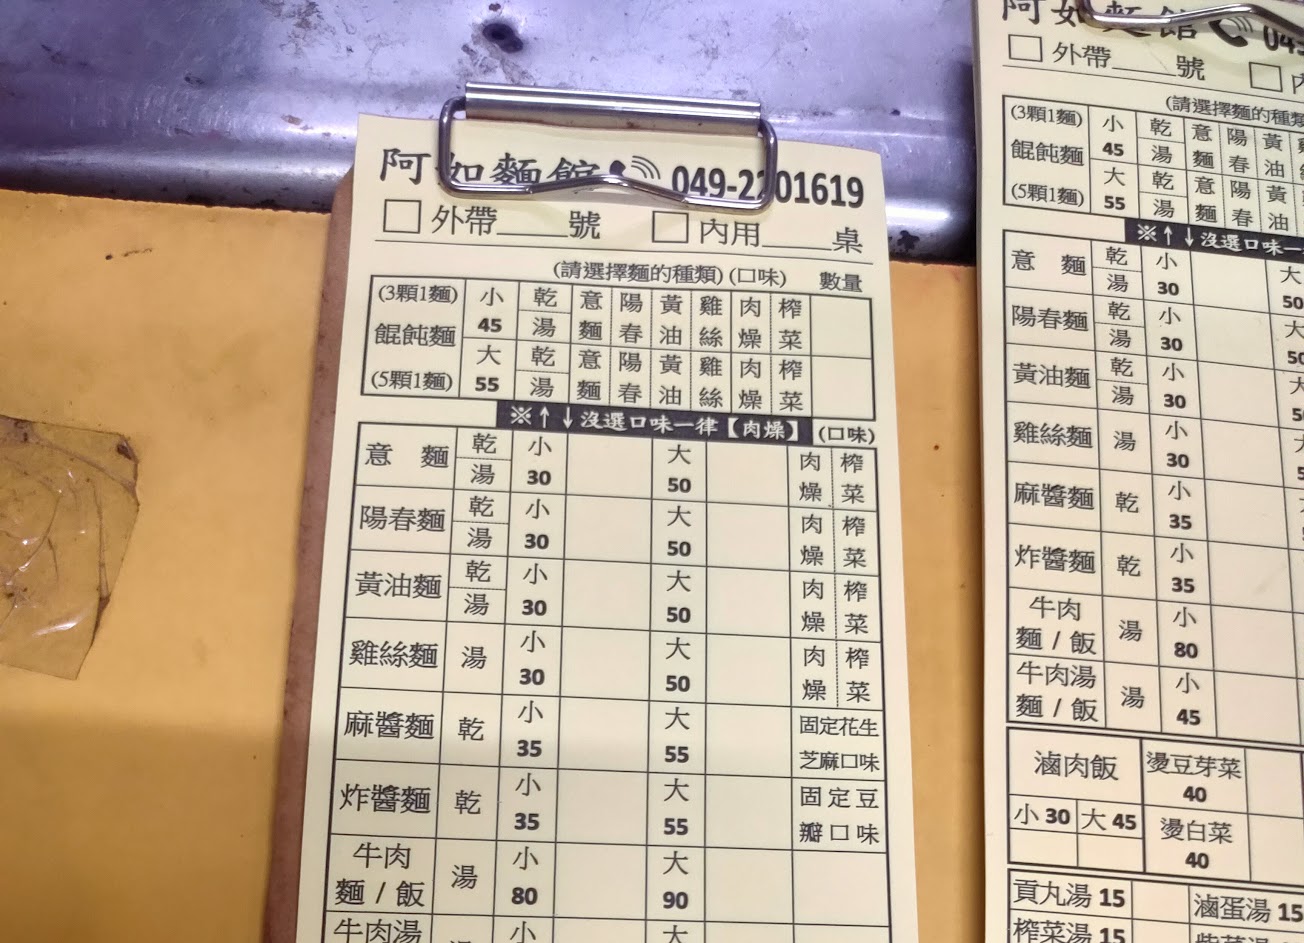 阿如麵館 049-2201619
□外帶____號 □內用____桌
(請選擇麵的種類)(口味) 數量
(3顆1麵) 餛飩麵 (5顆1麵)
小 45 乾 湯 意麵 陽春 黃油 雞絲 肉燥 榨菜
大 55 乾 湯 意麵 陽春 黃油 雞絲 肉燥 榨菜
※↑↓沒選口味一律【肉燥】 (口味)
意 麵 乾 湯 小 30 大 50 肉燥 榨菜
陽春麵 乾 湯 小 30 大 50 肉燥 榨菜
黃油麵 乾 湯 小 30 大 50 肉燥 榨菜
雞絲麵 湯 小 30 大 50 肉燥 榨菜
麻醬麵 乾 小 35 大 55 固定花生芝麻口味
炸醬麵 乾 小 35 大 55 固定豆瓣口味
牛肉麵/飯 湯 小 80 大 90
牛肉湯 小 大
阿如麵館
□外帶____號 □
(請選擇麵的種類
(3顆1麵) 餛飩麵 (5顆1麵)
小 45 乾 湯 意麵 陽春 黃油
大 55 乾 湯 意麵 陽春 黃油
※↑↓沒選口味一
意 麵 乾 湯 小 30 大 50
陽春麵 乾 湯 小 30 大 50
黃油麵 乾 湯 小 30 大
雞絲麵 湯 小 30 大
麻醬麵 乾 小 35
炸醬麵 乾 小 35
牛肉麵/飯 湯 小 80
牛肉湯麵/飯 湯 小 45
滷肉飯 燙豆芽菜 40
小 30 大 45 燙白菜 40
貢丸湯 15 滷蛋湯 15
榨菜湯 15